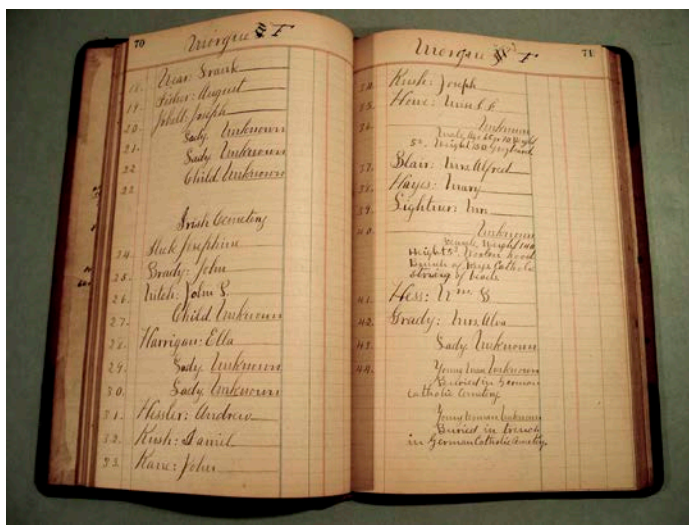 70
Morgue F
18. Near: Frank
19. Fisher: August
20. Joseph
21. Lady Unknown
Lady Unknown
22 Child Unknown
Irish Cemetery
24. Josephine
25. Brady: John
26. John
27. Child Unknown
28. Harrigan: Ella
29. Lady Unknown
30. Lady Unknown
31. Hessler: Andrew
32. Kush: Daniel
33. Kane: John
Morgue F
71
34. Kush: Joseph
35. Howe:
36 Unknown
Male Age 65 yr
Weight 150
37. Blair: Mrs Alfred
38. Hayes: Mary
39. Lightner: Mrs
40. Unknown
Weight 140
Height 5
Bunch of keys Catholic
string of beads
41. Hess: Wm
42. Grady: Mrs Alva
43. Lady Unknown
44. Young man Unknown
Buried in German
Catholic Cemetery
Young woman Unknown
Buried in trench
in German Catholic Cemetery